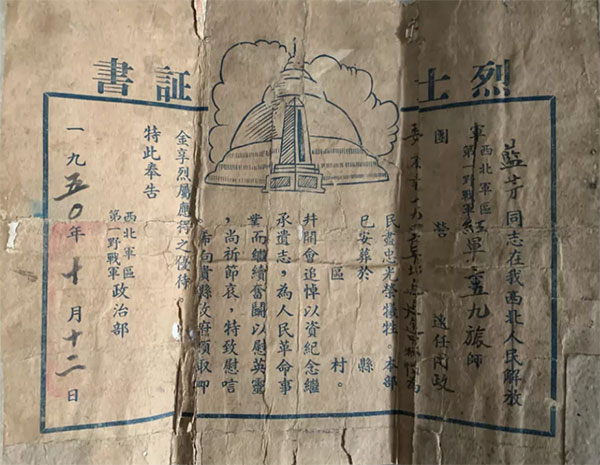 烈士証書
藍芳同志在我西北人民解放
軍西北軍區第一野戰軍紅軍三五九旅師
團營連任
民盡忠光榮犧牲。本部
已安葬於縣
區村。
并開會追悼以資紀念繼
承遺志,為人民革命事
業而繼續奮鬬以慰英靈
,尚祈節哀,特致慰唁
希向貴縣政府領取卹
金享烈屬應得之優待
特此奉告
西北軍區
第一野戰軍政治部
一九五〇年十月十二日